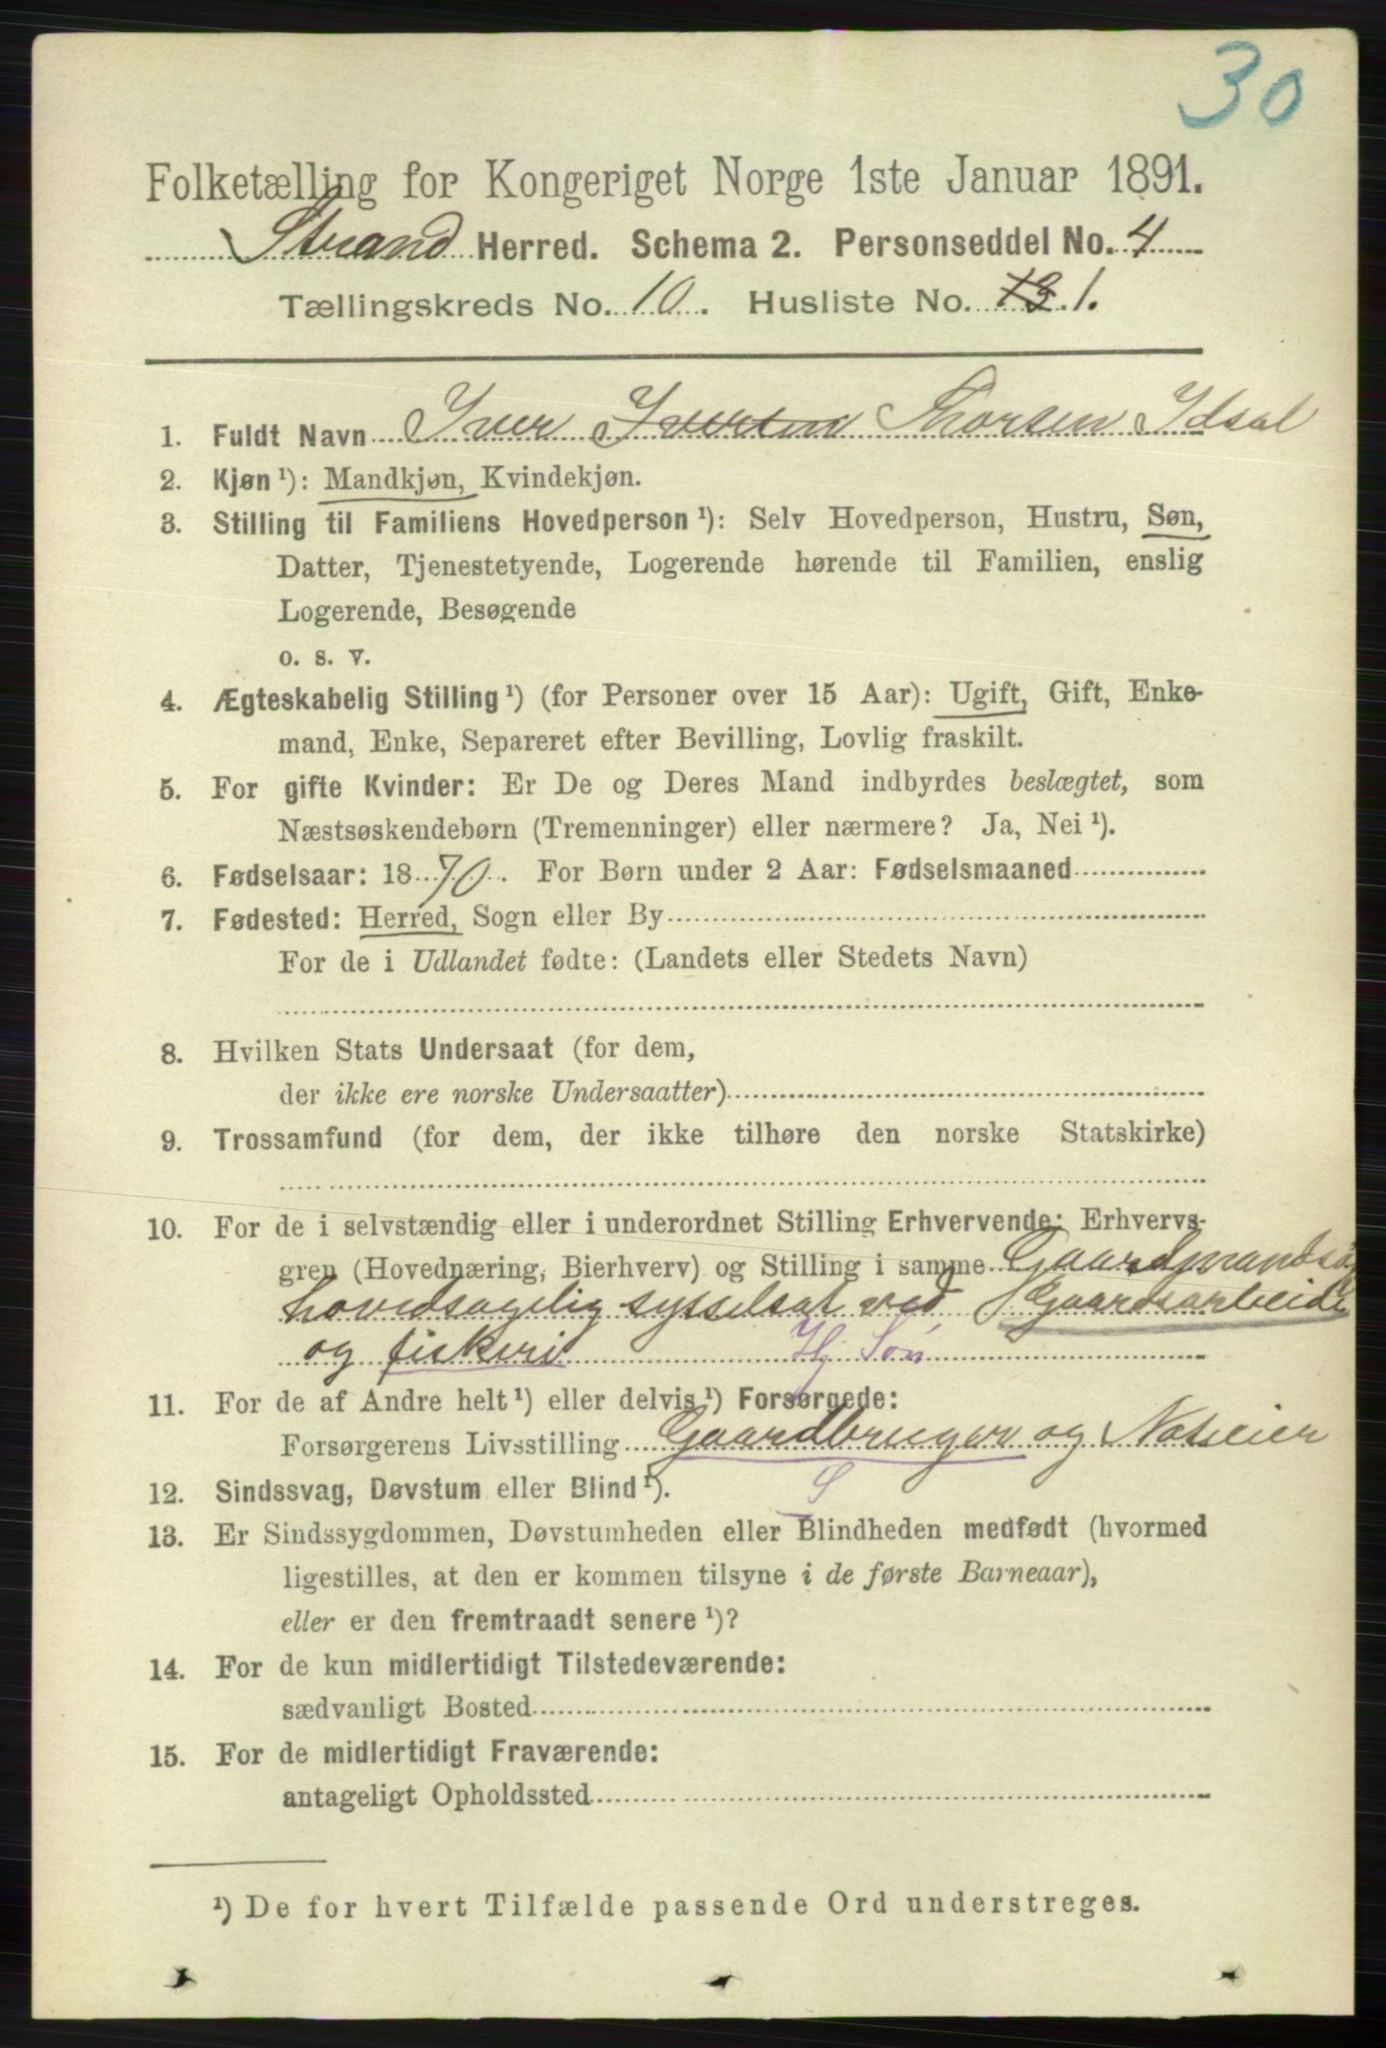 30
Folketælling for Kongeriget Norge 1ste Januar 1891.
Strand Herred. Schema 2. Personseddel No. 4
Tællingskreds No. 10. Husliste No. 13 1.
1. Fuldt Navn Iver Iversen Thorsen Idsal
2. Kjøn ¹): Mandkjøn, Kvindekjøn.
3. Stilling til Familiens Hovedperson ¹): Selv Hovedperson, Hustru, Søn,
Datter, Tjenestetyende, Logerende hørende til Familien, enslig
Logerende, Besøgende
o. s. v.
4. Ægteskabelig Stilling ¹) (for Personer over 15 Aar): Ugift, Gift, Enke-
mand, Enke, Separeret efter Bevilling, Lovlig fraskilt.
5. For gifte Kvinder: Er De og Deres Mand indbyrdes beslægtet, som
Næstsøskendebørn (Tremenninger) eller nærmere? Ja, Nei ¹).
6. Fødselsaar: 1870. For Børn under 2 Aar: Fødselsmaaned
7. Fødested: Herred, Sogn eller By
For de i Udlandet fødte: (Landets eller Stedets Navn)
8. Hvilken Stats Undersaat (for dem,
der ikke ere norske Undersaatter)
9. Trossamfund (for dem, der ikke tilhøre den norske Statskirke)
10. For de i selvstændig eller i underordnet Stilling Erhvervende: Erhvervs-
gren (Hovednæring, Bierhverv) og Stilling i samme Gaardmandsøn
hovedsagelig sysselsat ved Gaardsarbeide
og fiskeri Hj Søn
11. For de af Andre helt ¹) eller delvis ¹) Forsørgede:
Forsørgerens Livsstilling Gaardbruger og Noteier
S
12. Sindssvag, Døvstum eller Blind ¹).
13. Er Sindssygdommen, Døvstumheden eller Blindheden medfødt (hvormed
ligestilles, at den er kommen tilsyne i de første Barneaar),
eller er den fremtraadt senere ¹)?
14. For de kun midlertidigt Tilstedeværende:
sædvanligt Bosted
15. For de midlertidigt Fraværende:
antageligt Opholdssted
¹) De for hvert Tilfælde passende Ord understreges.